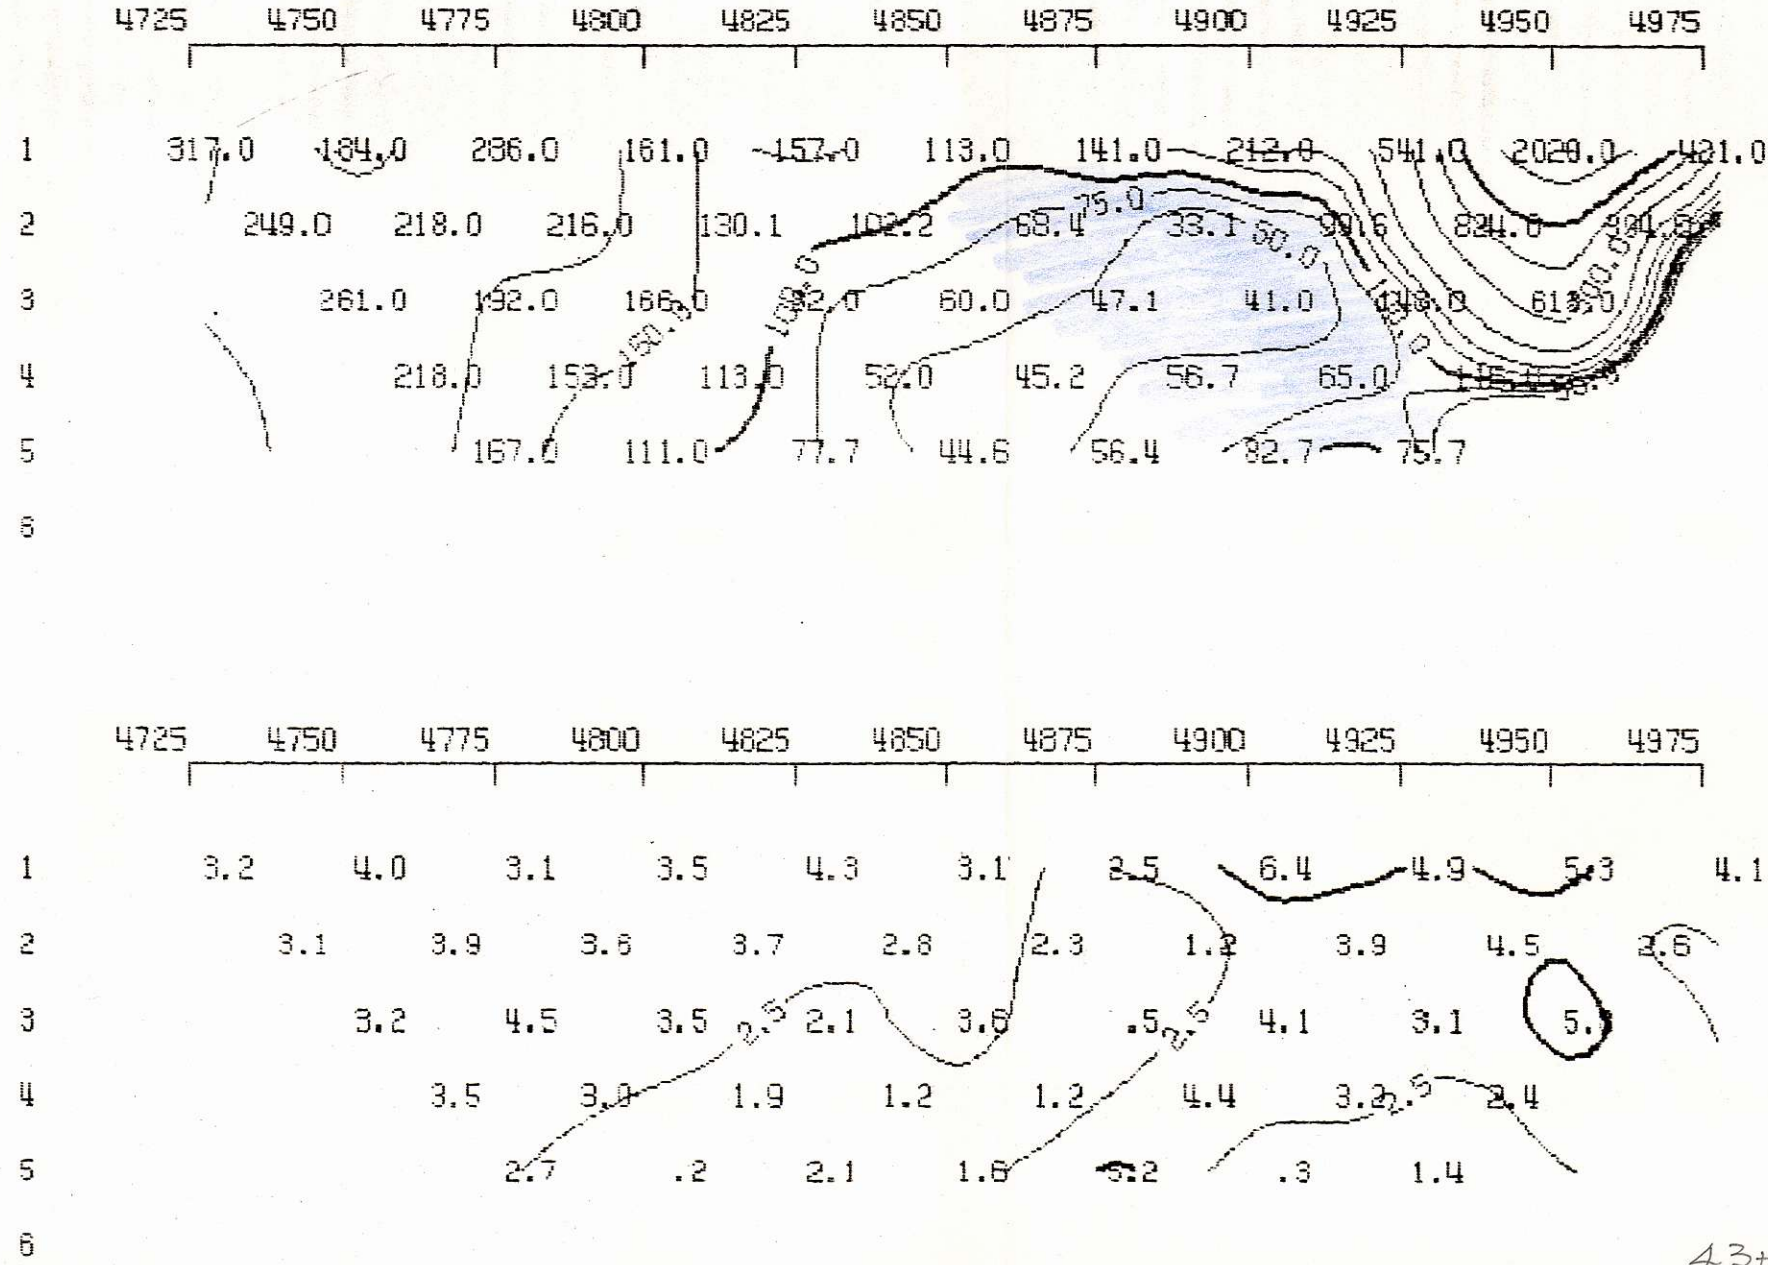 4725 4750 4775 4800 4825 4850 4875 4900 4925 4950 4975
1 317.0 184.0 286.0 161.0 157.0 113.0 141.0 212.0 541.0 2020.0 421.0
75.0
2 249.0 218.0 216.0 130.1 102.2 68.4 33.1 99.6 824.0
50.0
100.0
3 261.0 192.0 166.0 60.0 47.1 41.0 148.0 613.0
150.0
4 218.0 153.0 113.0 52.0 45.2 56.7 65.0
5 167.0 111.0 77.7 44.6 56.4 82.7 75.7
6
4725 4750 4775 4800 4825 4850 4875 4900 4925 4950 4975
1 3.2 4.0 3.1 3.5 4.3 3.1 2.5 6.4 4.9 5.3 4.1
2 3.1 3.9 3.6 3.7 2.8 2.3 1.2 3.9 4.5 2.6
3 3.2 4.5 3.5 2.5 2.1 3.6 .5 2.5 4.1 3.1
4 3.5 3.0 1.9 1.2 1.2 4.4 3.2 2.5 2.4
5 2.7 .2 2.1 1.6 .3 1.4
6